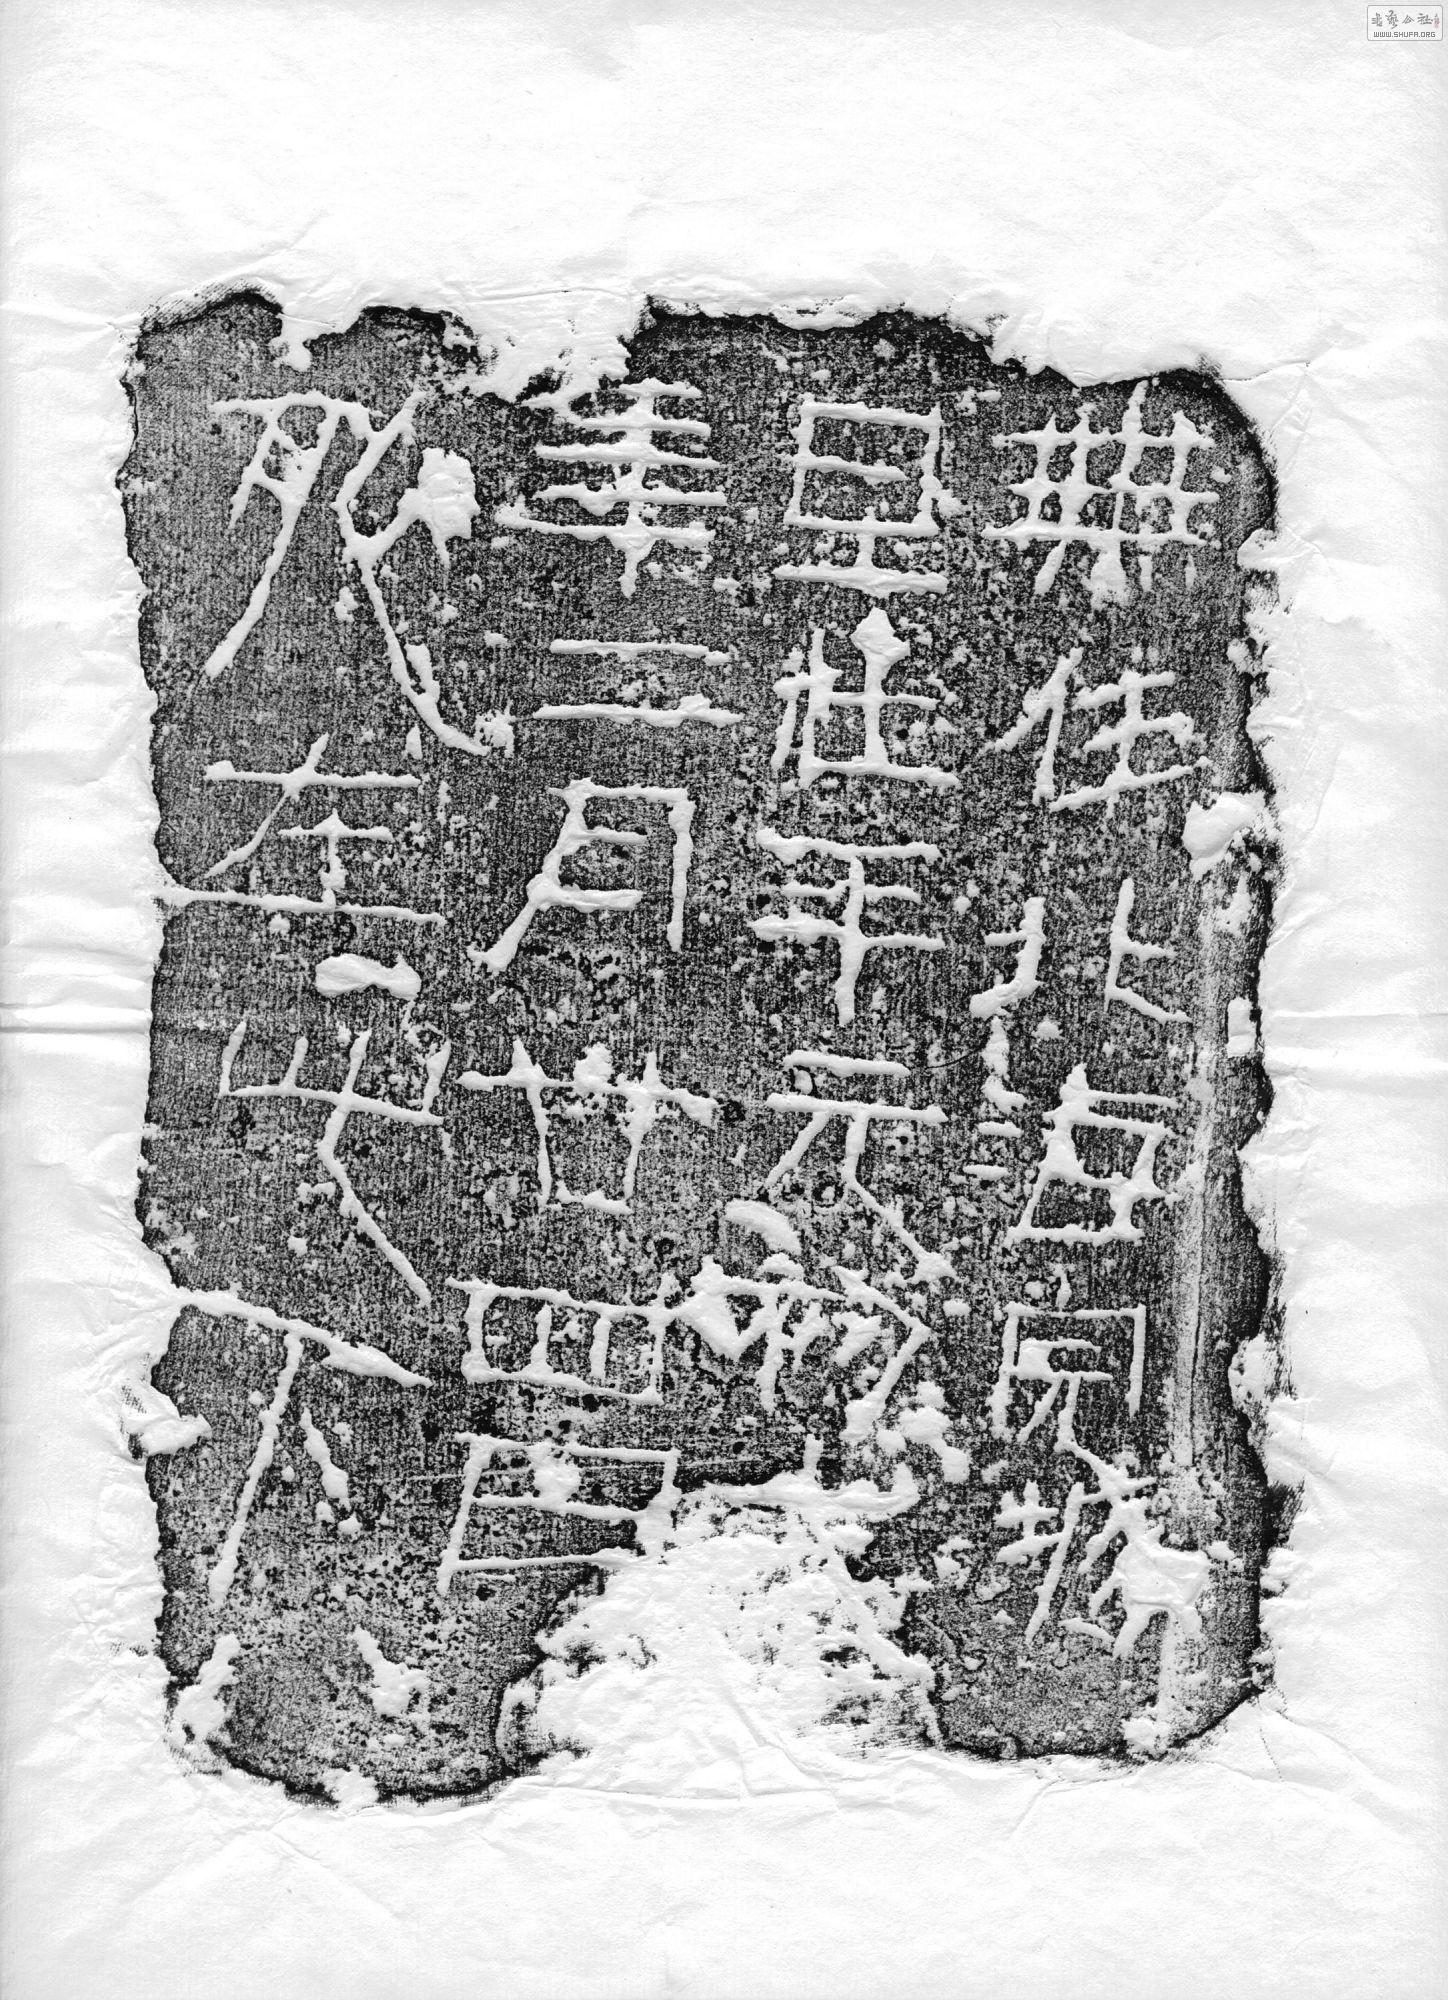 無任北海完城
旦杜平元初六
年二月廿四日
死在此下
书艺公社
WWW.SHUFA.ORG